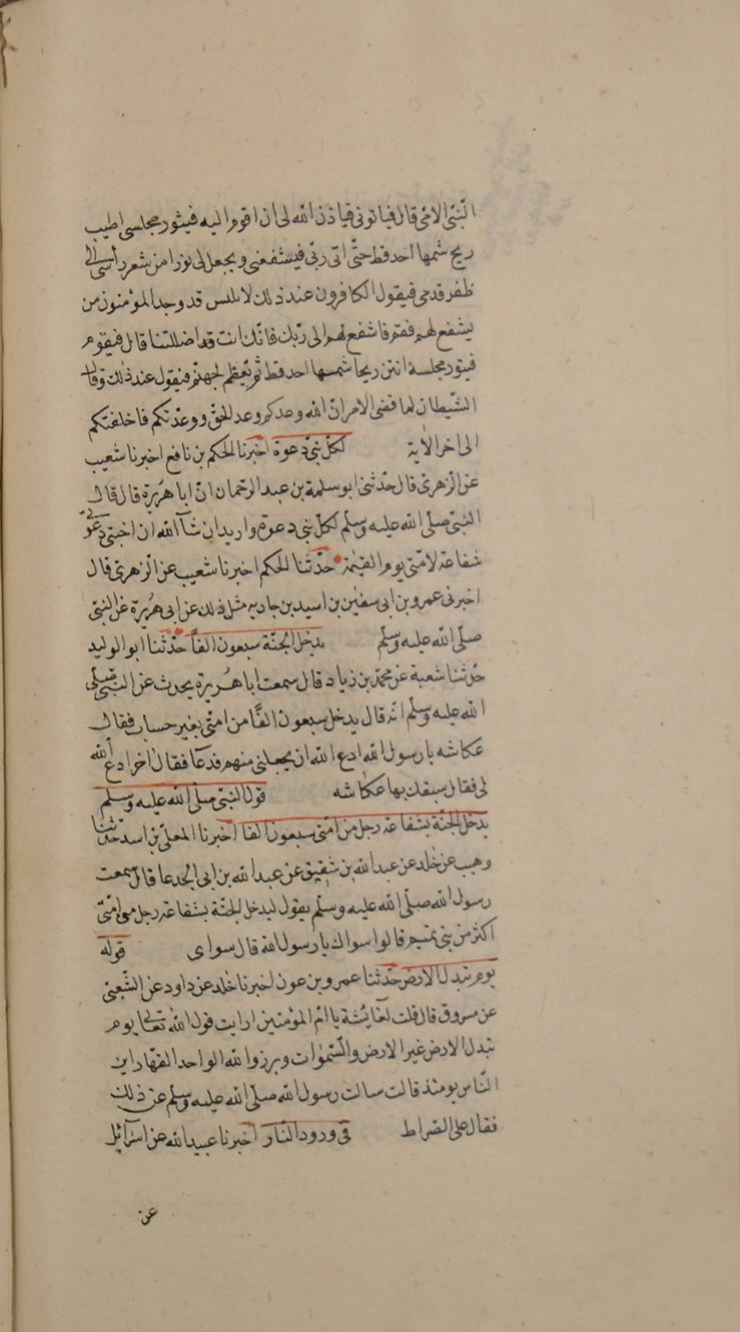 النبي الامي قال فياتوني فياذن الله لي ان اقوم اليه فيثور مجلسي اطيب
ريح شمها احد قط حتى اتى ربي فيشفعني ويجعل لي نورا من شعر رأسي الى
ظفر قدمي فيقول الكافرون عند ذلك لابليس قد وجد المؤمنون من
يشفع لهم فقم فاشفع لهم الى ربك فانك انت قد اضللتنا قال فيقوم
فيثور مجلسه انتن ريحا شمها احد قط ثم تعظم لجهنم فيقول عند ذلك وقال
الشيطان لما قضى الامر ان الله وعدكم وعد الحق ووعدتكم فاخلفتكم
الى اخر الاية لكل نبي دعوة اخبرنا الحكم بن نافع اخبرنا شعيب
عن الزهري قال حدثني ابو سلمة بن عبد الرحمان ان ابا هريرة قال قال
النبي صلى الله عليه وسلم لكل نبي دعوة واريد ان شآ الله ان اختبي دعوتي
شفاعة لامتي يوم القيمة حدثنا الحكم اخبرنا شعيب عن الزهري قال
اخبرني عمرو بن ابي سفين بن اسيد بن جارية مثل ذلك عن ابي هريرة عن النبي
صلى الله عليه وسلم يدخل الجنة سبعون الفا حدثنا ابو الوليد
حدثنا شعبة عن محمد بن زياد قال سمعت ابا هريرة يحدث عن النبي صلى
الله عليه وسلم انه قال يدخل سبعون الفا من امتي بغير حساب فقال
عكاشه يا رسول الله ادع الله ان يجعلني منهم فدعا فقال اخر ادع الله
لي فقال سبقك بها عكاشه قول النبي صلى الله عليه وسلم
يدخل الجنة بشفاعة رجل من امتي سبعون الفا اخبرنا المعلى بن اسد حدثنا
وهيب عن خلد عن عبد الله بن شقيق عن عبد الله بن ابي الجدعا قال سمعت
رسول الله صلى الله عليه وسلم يقول ليدخل الجنة بشفاعة رجل من امتي
اكثر من بني تميم قالوا سواك يا رسول الله قال سواى قوله
يوم تبدل الارض حدثنا عمرو بن عون اخبرنا خلد عن داود عن الشعبي
عن مسروق قال قلت لعايشة يا ام المؤمنين ارايت قول الله تعالى يوم
تبدل الارض غير الارض والسموات وبرزوا لله الواحد القهار اين
الناس يومئذ قالت سالت رسول الله صلى الله عليه وسلم عن ذلك
فقال على الصراط في ورود النار اخبرنا عبيد الله عن اسرائيل
عن